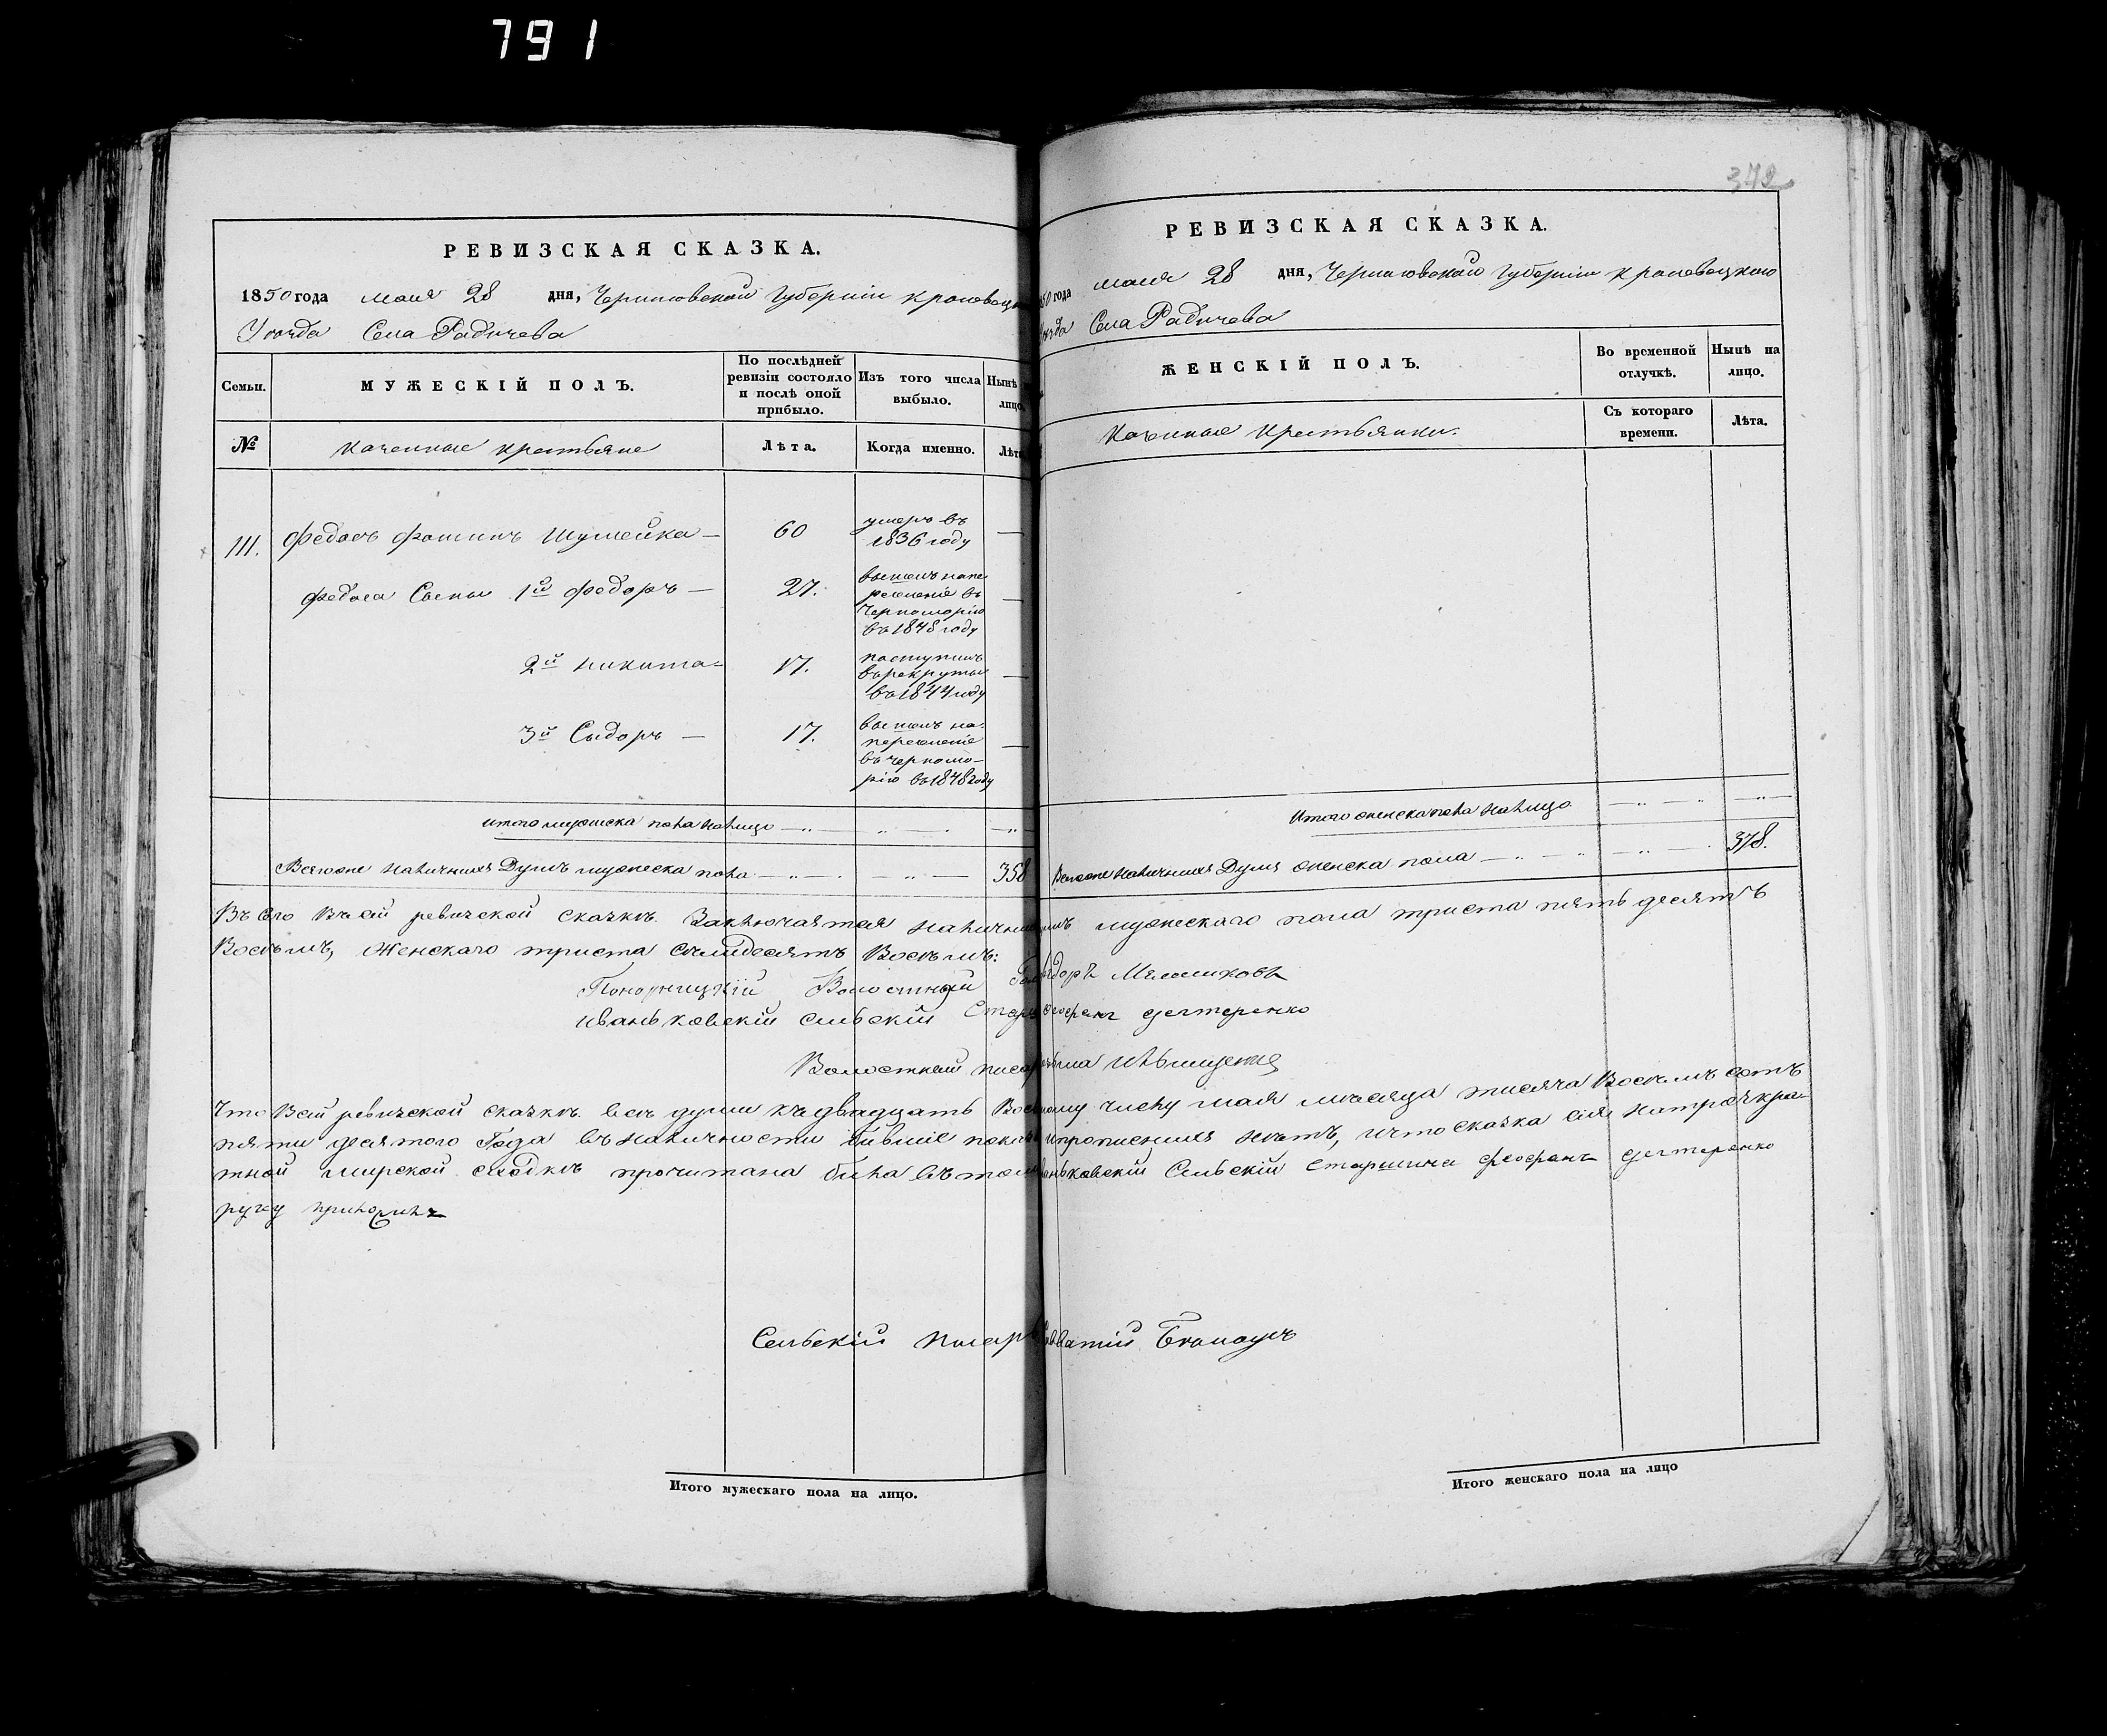 791
РЕВИЗСКАЯ СКАЗКА.
1850 года мая 28 дня, Черниговской Губернии Кролевецк
Уезда Села Радичева
Семьи.
МУЖЕСКІЙ ПОЛЪ.
По послѣдней
ревизіи состояло
и послѣ оной
прибыло.
Изъ того числа
выбыло.
Нынѣ
лицо
№
Казенные крестьяне
Лѣта.
Когда именно.
Лѣта
111. Федосъ Шумейка — 60
умеръ въ
1836 году
Федоса Сыны 1й Федоръ — 27.
вышолъ на пе
реселеніе въ
Черноморію
въ 1848 году
2й Никита 17.
поступилъ
въ рекруты
въ 1844 году
3й Сыдоръ — 17.
вышолъ на
переселеніе
въ черномо-
рію въ 1848 году
Итого мужеска пола налицо
Всего наличныхъ Душъ мужеска пола 358
372
РЕВИЗСКАЯ СКАЗКА.
50 года мая 28 дня, Черниговской Губерніи Кролевецкого
Села Радичева
ЖЕНСКІЙ ПОЛЪ.
Во временной
отлучкѣ.
Нынѣ на
лицо.
Казенные Крестьянки.
Съ котораго
времени.
Лѣта.
Итого женска пола налицо
наличныхъ Душъ женска пола 378.
Въ сей ревизской сказкѣ Заключается наличныхъ мужескаго пола триста пять десятъ
Восемъ, Женскаго триста семдесятъ Восемъ:
Понорницкій Волостной
Иваньковскій Сельскій Дегтеренко
Волостной писарь
Что Всей ревизской сказкѣ всѣ души къ двадцать числу мая мѣсяца тисяча Восемъ сотъ
пяти десятого Года въ наличности бившіе нѣтъ, и что сказка сія на трочкра-
тной мирской сходкѣ прочитана била въ том Сельскій Старшина Феофанъ Дегтеренко
руку приложилъ
Сельскій писарь
Итого мужескаго пола на лицо.
Итого женскаго пола на лицо